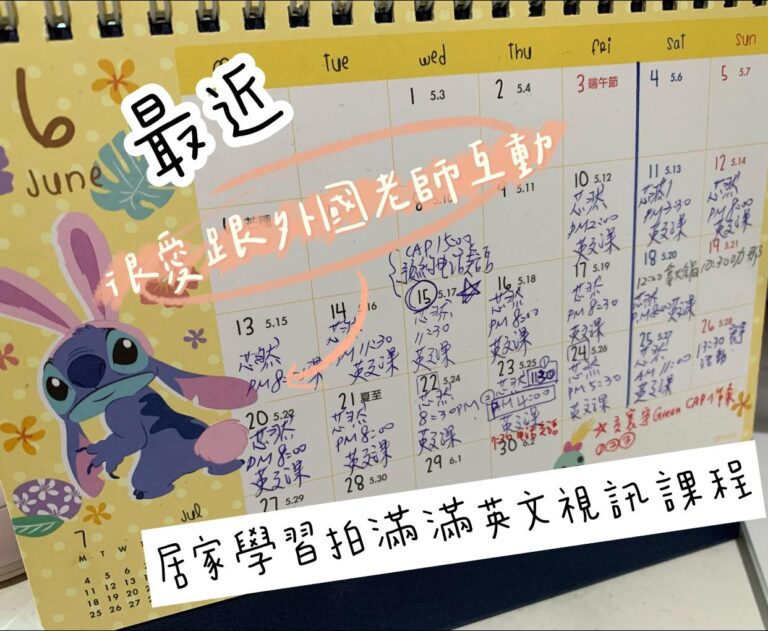 6
June
最近
很愛跟外國老師互動
居家學習拍滿滿英文視訊課程
TUE wed Thu Fri Sat Sun
1 5.3
2 5.4
3 端午節
4 5.6
5 5.7
5.11
10 5.12
芯然
PM2:00
英文課
11 5.13
芯然
PM3:30
英文課
12 5.14
芯然
PM8:00
英文課
CAP 15:00
13 5.15
芯然
PM 8
14 5.16
芯然
PM 11:30
英文課
15 5.17
芯然
11:30
英文課
16 5.18
芯然
PM 8:00
英文課
17 5.19
芯然
PM 8:30
英文課
18 5.20
芯然
PM8:00 英文課
19 5.21
10:30
20 5.22
芯然
PM 8:00
英文課
21 夏至
芯然
PM 8:00
英文課
22 5.24
芯然
8:30PM
英文課
23 5.25
芯然
① 11:30
② PM 4:00
英文課
24 5.26
芯然
PM 5:30
英文課
25 5.27
芯然
AM 11:00
英文課
26 5.28
13:30
活動
27 5.29
28 5.30
29 6.1
30 6.2
Green CAP
①②③
7 Jul
M T W
4 5 6
11 12 13
18 19 20
25 26 27